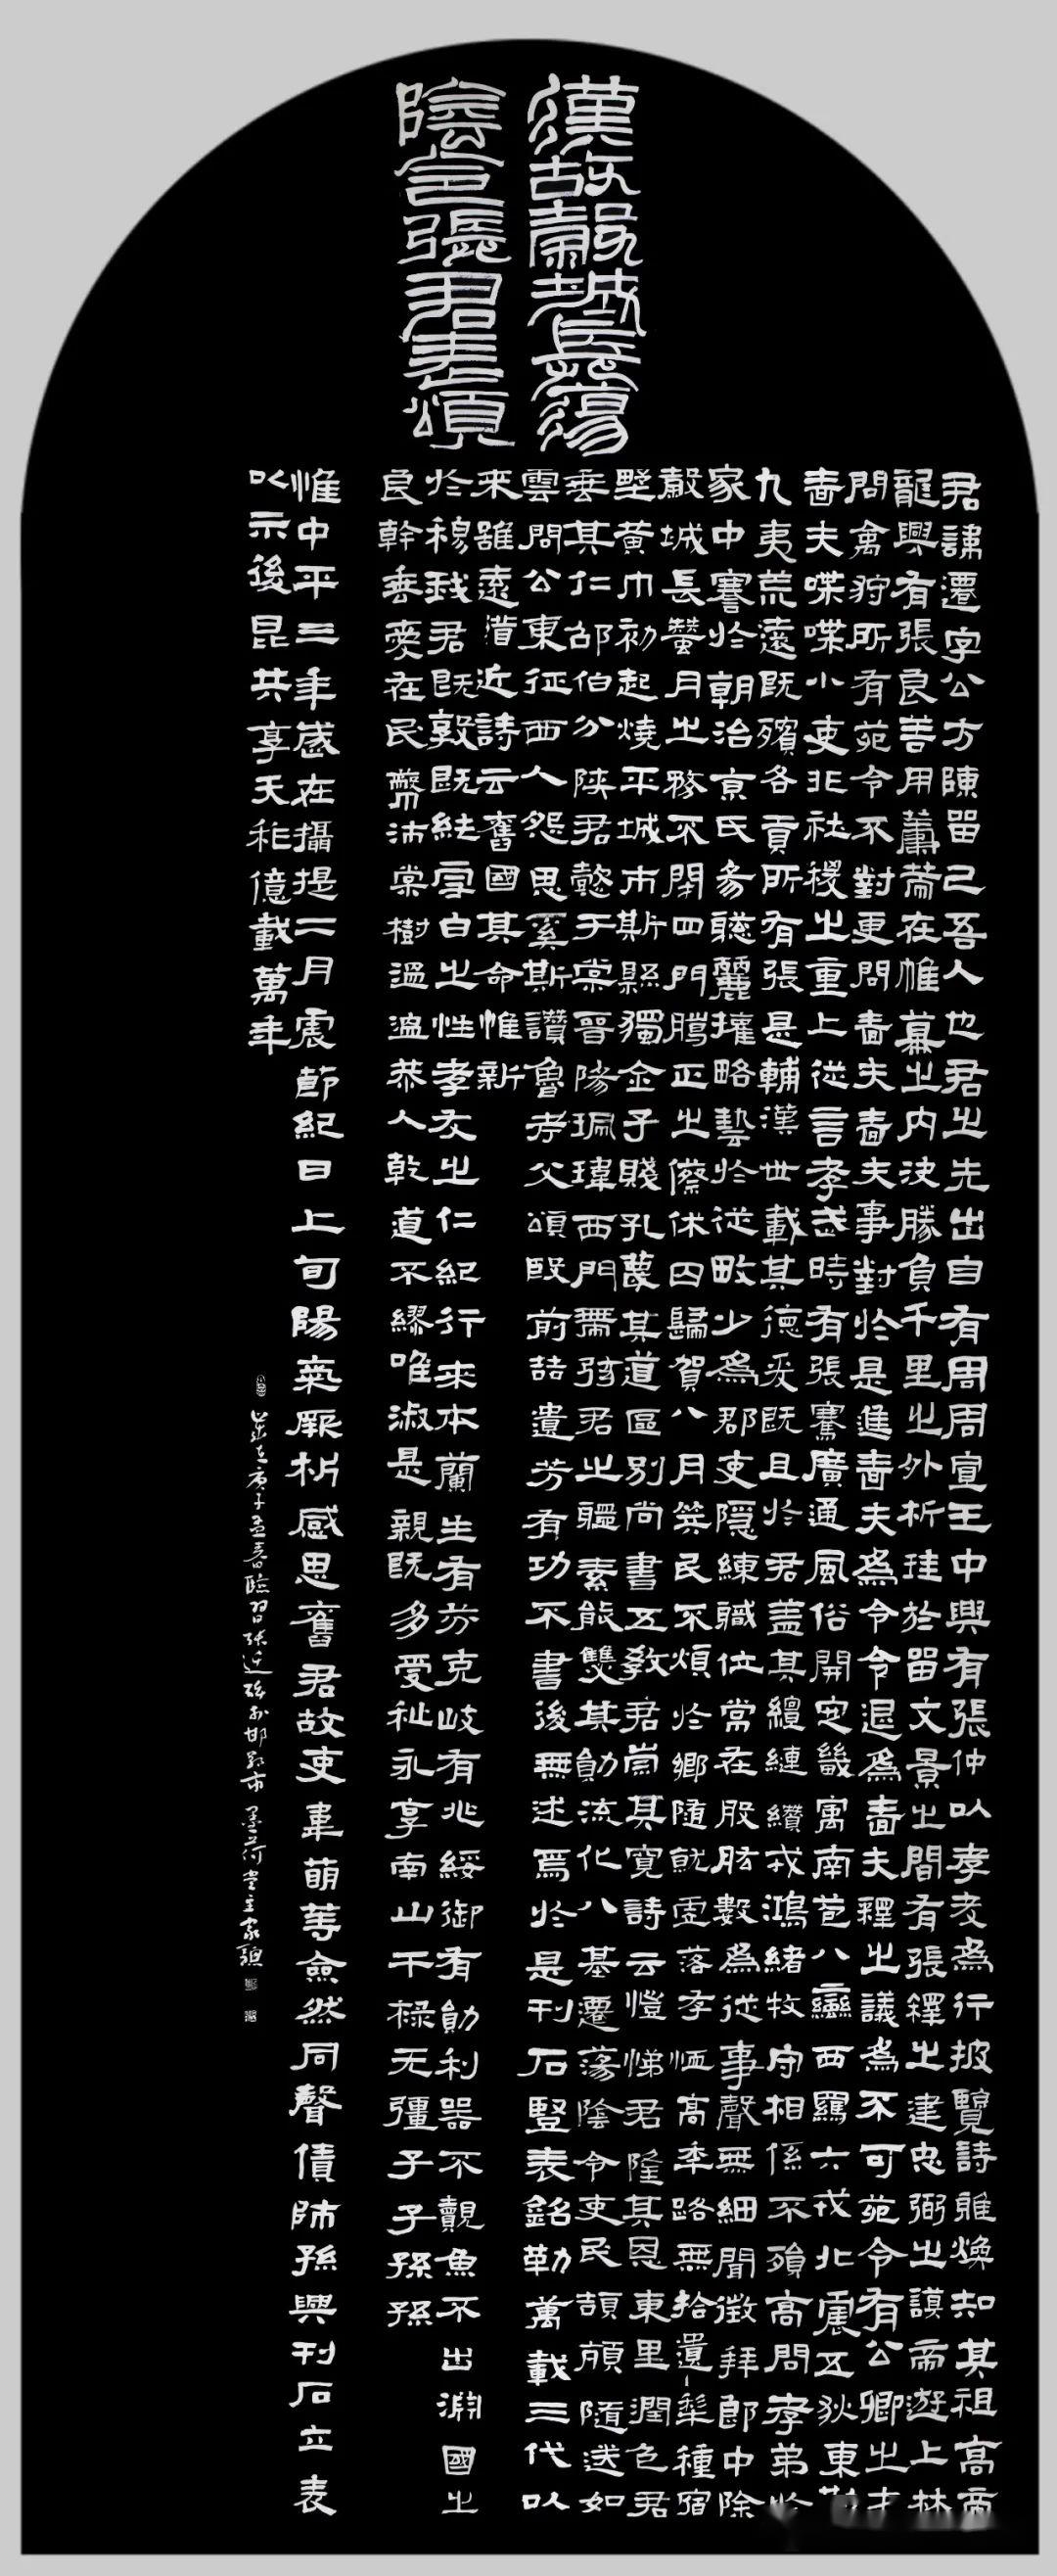 漢故穀城長蕩
陰令張君表頌
君諱遷字公方陳留己吾人也君之先出自有周周宣王中興有張仲以孝友為行披覽詩雅煥知其祖高帝
龍興有張良善用籌策在帷幕之內決勝負千里之外析珪於留文景之間有張釋之建忠弼之謨帝遊上林
問禽狩所有苑令不對更問嗇夫嗇夫事對於是進嗇夫為令令退為嗇夫釋之議為不可苑令有公卿之才
嗇夫喋喋小吏非社稷之重上從言孝武時有張騫廣通風俗開定畿寓南苞八蠻西羈六戎北震五狄東勤
九夷荒遠既殯各貢所有張是輔漢世載其德爰既且於君蓋其繵縺纘戎鴻緒牧守相係不殞高問孝弟於
家中謇於朝治京氏易聰麗權略藝於從畋少為郡吏隱練職位常在股肱數為從事聲無細聞徵拜郎中除
穀城長蠶月之務不閉四門臘正之僚休囚歸賀八月筭民不煩於鄉隨就虛落存恤高年路無拾遺犁種宿
野黃巾初起燒平城市斯縣獨全子賤孔蔑其道區別尚書五教君崇其寬詩云愷悌君隆其恩東里潤色君
垂其仁邵伯分陝君懿于棠晉陽珮瑋西門帶弦君之體素能雙其勛流化八基遷蕩陰令吏民頡頏隨送如
雲問公東征西人怨思奚斯讚魯考父頌殷前喆遺芳有功不書後無述焉於是刊石豎表銘勒萬載三代以
來雖遠猶近詩云舊國其命惟新
於穆我君既敦既純雪白之性孝友之仁紀行來本蘭生有芬克岐有兆綏御有勛利器不覿魚不出淵國之
良幹垂愛在民蔽沛棠樹溫溫恭人乾道不繆唯淑是親既多受祉永享南山干祿无疆子子孫孫
惟中平三年歲在攝提二月震節紀日上旬陽氣厥析感思舊君故吏韋萌等僉然同聲賃師孫興刊石立表
以示後昆共享天祚億載萬年
歲在庚子孟春臨習張遷碑於邯鄲市墨荷堂主家